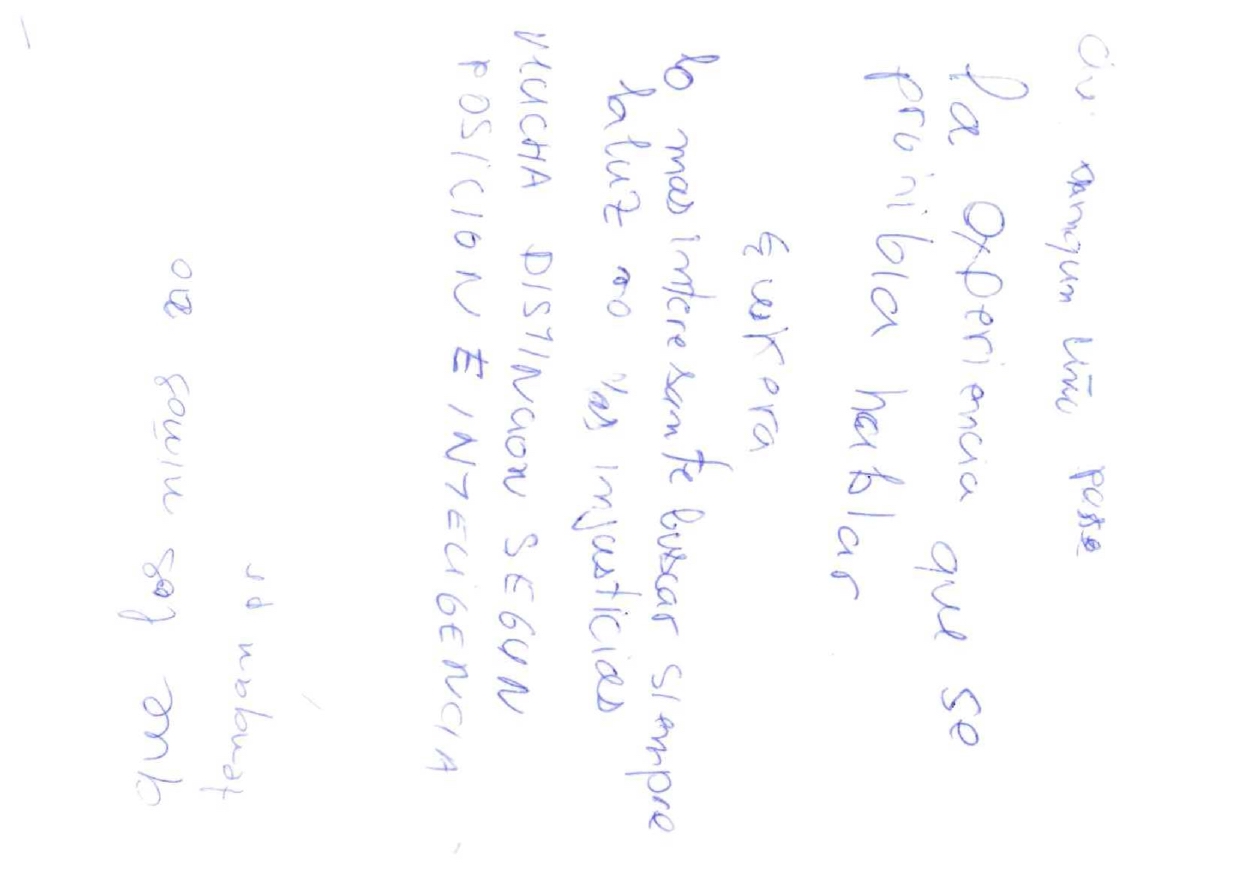 Que ningun niño pase
la experiencia que se
prohibia hablar
Euskera
lo mas interesante buscar siempre
la luz no las injusticias
MUCHA DISTINCION SEGUN
POSICION E INTELIGENCIA
que los niños no
tengan